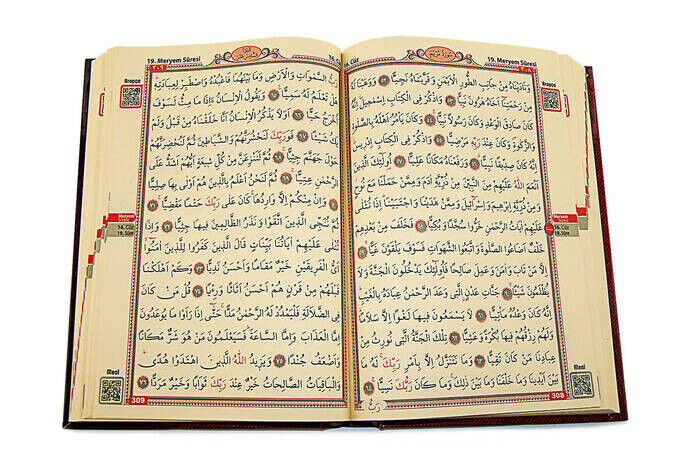 19. Meryem Sûresi
سُورَةُ مَرْيَمَ
16. Cüz
٣٠٨
Arapça
وَنَادَيْنَاهُ مِنْ جَانِبِ الطُّورِ الْاَيْمَنِ وَقَرَّبْنَاهُ نَجِيًّا ٥٢ وَوَهَبْنَا لَهُ
مِنْ رَحْمَتِنَا اَخَاهُ هٰرُونَ نَبِيًّا ٥٣ وَاذْكُرْ فِي الْكِتَابِ اِسْمٰعِيلَ اِنَّهُ
كَانَ صَادِقَ الْوَعْدِ وَكَانَ رَسُولًا نَبِيًّا ٥٤ وَكَانَ يَأْمُرُ اَهْلَهُ بِالصَّلٰوةِ
وَالزَّكٰوةِ وَكَانَ عِنْدَ رَبِّهِ مَرْضِيًّا ٥٥ وَاذْكُرْ فِي الْكِتَابِ اِدْرِيسَ
اِنَّهُ كَانَ صِدِّيقًا نَبِيًّا ٥٦ وَرَفَعْنَاهُ مَكَانًا عَلِيًّا ٥٧ اُولٰئِكَ الَّذِينَ
اَنْعَمَ اللّٰهُ عَلَيْهِمْ مِنَ النَّبِيّنَ مِنْ ذُرِّيَّةِ اٰدَمَ وَمِمَّنْ حَمَلْنَا مَعَ نُوحٍ
وَمِنْ ذُرِّيَّةِ اِبْرٰهِيمَ وَاِسْرَاۤئِيلَ وَمِمَّنْ هَدَيْنَا وَاجْتَبَيْنَا اِذَا تُتْلٰى
عَلَيْهِمْ اٰيَاتُ الرَّحْمٰنِ خَرُّوا سُجَّدًا وَبُكِيًّا ٥٨ فَخَلَفَ مِنْ بَعْدِهِمْ
خَلْفٌ اَضَاعُوا الصَّلٰوةَ وَاتَّبَعُوا الشَّهَوَاتِ فَسَوْفَ يَلْقَوْنَ غَيًّا ٥٩
اِلَّا مَنْ تَابَ وَاٰمَنَ وَعَمِلَ صَالِحًا فَاُولٰئِكَ يَدْخُلُونَ الْجَنَّةَ وَلَا
يُظْلَمُونَ شَيْئًا ٦٠ جَنَّاتِ عَدْنٍ الَّتِي وَعَدَ الرَّحْمٰنُ عِبَادَهُ بِالْغَيْبِ
اِنَّهُ كَانَ وَعْدُهُ مَأْتِيًّا ٦١ لَا يَسْمَعُونَ فِيهَا لَغْوًا اِلَّا سَلَامًا
وَلَهُمْ رِزْقُهُمْ فِيهَا بُكْرَةً وَعَشِيًّا ٦٢ تِلْكَ الْجَنَّةُ الَّتِي نُورِثُ مِنْ
عِبَادِنَا مَنْ كَانَ تَقِيًّا ٦٣ وَمَا نَتَنَزَّلُ اِلَّا بِاَمْرِ رَبِّكَ لَهُ مَا
بَيْنَ اَيْدِينَا وَمَا خَلْفَنَا وَمَا بَيْنَ ذٰلِكَ وَمَا كَانَ رَبُّكَ نَسِيًّا ٦٤
رَبُّ
Meal
308
19. Meryem Sûresi
16. Cüz
٣٠٩
Arapça
رَبُّ السَّمٰوَاتِ وَالْاَرْضِ وَمَا بَيْنَهُمَا فَاعْبُدْهُ وَاصْطَبِرْ لِعِبَادَتِهِ
هَلْ تَعْلَمُ لَهُ سَمِيًّا ٦٥ وَيَقُولُ الْاِنْسَانُ ءَاِذَا مَا مِتُّ لَسَوْفَ
اُخْرَجُ حَيًّا ٦٦ اَوَلَا يَذْكُرُ الْاِنْسَانُ اَنَّا خَلَقْنَاهُ مِنْ قَبْلُ وَلَمْ
يَكُ شَيْئًا ٦٧ فَوَرَبِّكَ لَنَحْشُرَنَّهُمْ وَالشَّيَاطِينَ ثُمَّ لَنُحْضِرَنَّهُمْ
حَوْلَ جَهَنَّمَ جِثِيًّا ٦٨ ثُمَّ لَنَنْزِعَنَّ مِنْ كُلِّ شِيعَةٍ اَيُّهُمْ اَشَدُّ عَلَى
الرَّحْمٰنِ عِتِيًّا ٦٩ ثُمَّ لَنَحْنُ اَعْلَمُ بِالَّذِينَ هُمْ اَوْلٰى بِهَا صِلِيًّا
٧٠ وَاِنْ مِنْكُمْ اِلَّا وَارِدُهَا كَانَ عَلٰى رَبِّكَ حَتْمًا مَقْضِيًّا ٧١
ثُمَّ نُنَجِّي الَّذِينَ اتَّقَوْا وَنَذَرُ الظَّالِمِينَ فِيهَا جِثِيًّا ٧٢ وَاِذَا
تُتْلٰى عَلَيْهِمْ اٰيَاتُنَا بَيِّنَاتٍ قَالَ الَّذِينَ كَفَرُوا لِلَّذِينَ اٰمَنُوا
اَيُّ الْفَرِيقَيْنِ خَيْرٌ مَقَامًا وَاَحْسَنُ نَدِيًّا ٧٣ وَكَمْ اَهْلَكْنَا
قَبْلَهُمْ مِنْ قَرْنٍ هُمْ اَحْسَنُ اَثَاثًا وَرِءْيًا ٧٤ قُلْ مَنْ كَانَ
فِي الضَّلَالَةِ فَلْيَمْدُدْ لَهُ الرَّحْمٰنُ مَدًّا حَتّٰى اِذَا رَاَوْا مَا يُوعَدُونَ
اِمَّا الْعَذَابَ وَاِمَّا السَّاعَةَ فَسَيَعْلَمُونَ مَنْ هُوَ شَرٌّ مَكَانًا
وَاَضْعَفُ جُنْدًا ٧٥ وَيَزِيدُ اللّٰهُ الَّذِينَ اهْتَدَوْا هُدًى
وَالْبَاقِيَاتُ الصَّالِحَاتُ خَيْرٌ عِنْدَ رَبِّكَ ثَوَابًا وَخَيْرٌ مَرَدًّا ٧٦
Meryem
Sûresi
16. Cüz
19. Sûre
Meal
309